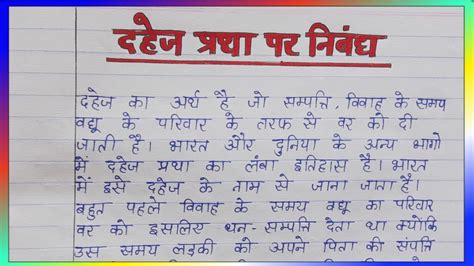 दहेज प्रथा पर निबंध
दहेज का अर्थ है जो सम्पत्ति, विवाह के समय
वधू के परिवार के तरफ से वर को दी
जाती है। भारत और दुनिया के अन्य भागो
में दहेज प्रथा का लंबा इतिहास है। भारत
में इसे दहेज के नाम से जाना जाता है।
बहुत पहले विवाह के समय वधू का परिवार
वर को इसलिए धन-सम्पत्ति देता था क्योंकि
उस समय लड़की को अपने पिता की संपत्ति